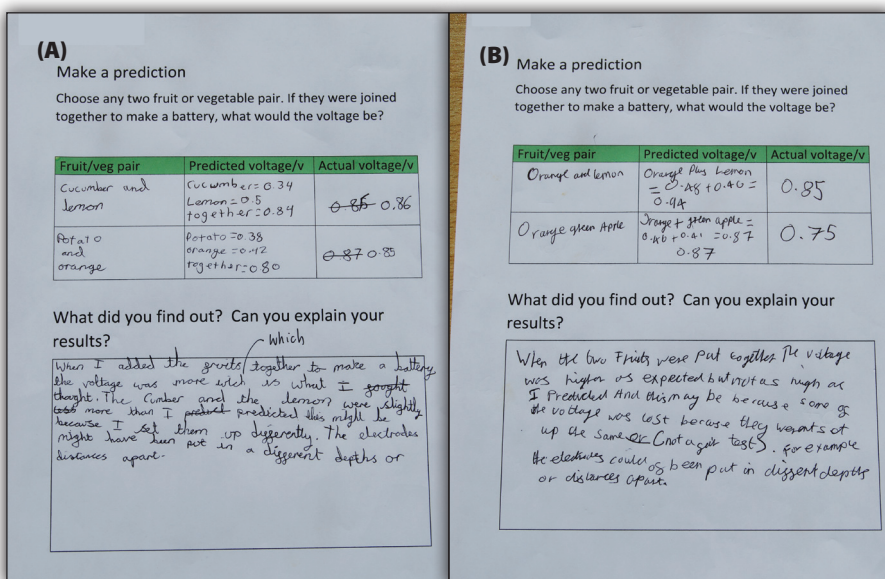 (A)
Make a prediction
Choose any two fruit or vegetable pair. If they were joined
together to make a battery, what would the voltage be?
Fruit/veg pair Predicted voltage/v Actual voltage/v
Cucumber and
lemon
Cucumber = 0.34
Lemon = 0.5
together = 0.84
0.85 0.86
Potato
and
orange
Potato = 0.38
orange = 0.42
together = 0.80
0.87 0.85
What did you find out? Can you explain your
results?
which
When I added the fruits together to make a battery
the voltage was more wich is what I
thought. The Cumber and the lemon were slightly
more than I predicted this might be
because I set them up differently. The electrodes
might have been put in a different depths or
distances apart.
(B)
Make a prediction
Choose any two fruit or vegetable pair. If they were joined
together to make a battery, what would the voltage be?
Fruit/veg pair Predicted voltage/v Actual voltage/v
Orange and lemon
Orange Plus Lemon
= 0.48 + 0.46 =
0.94
0.85
Orange green Apple
Orange + green apple =
0.46 + 0.41 = 0.87
0.87
0.75
What did you find out? Can you explain your
results?
When the two Fruits were put together The voltage
was higher as expected but not as high as
I Predicted And this may be because some of
the voltage was lost because they werent set
up the same or (not a fair test). For example
the electrodes could of been put in different depths
or distances apart.